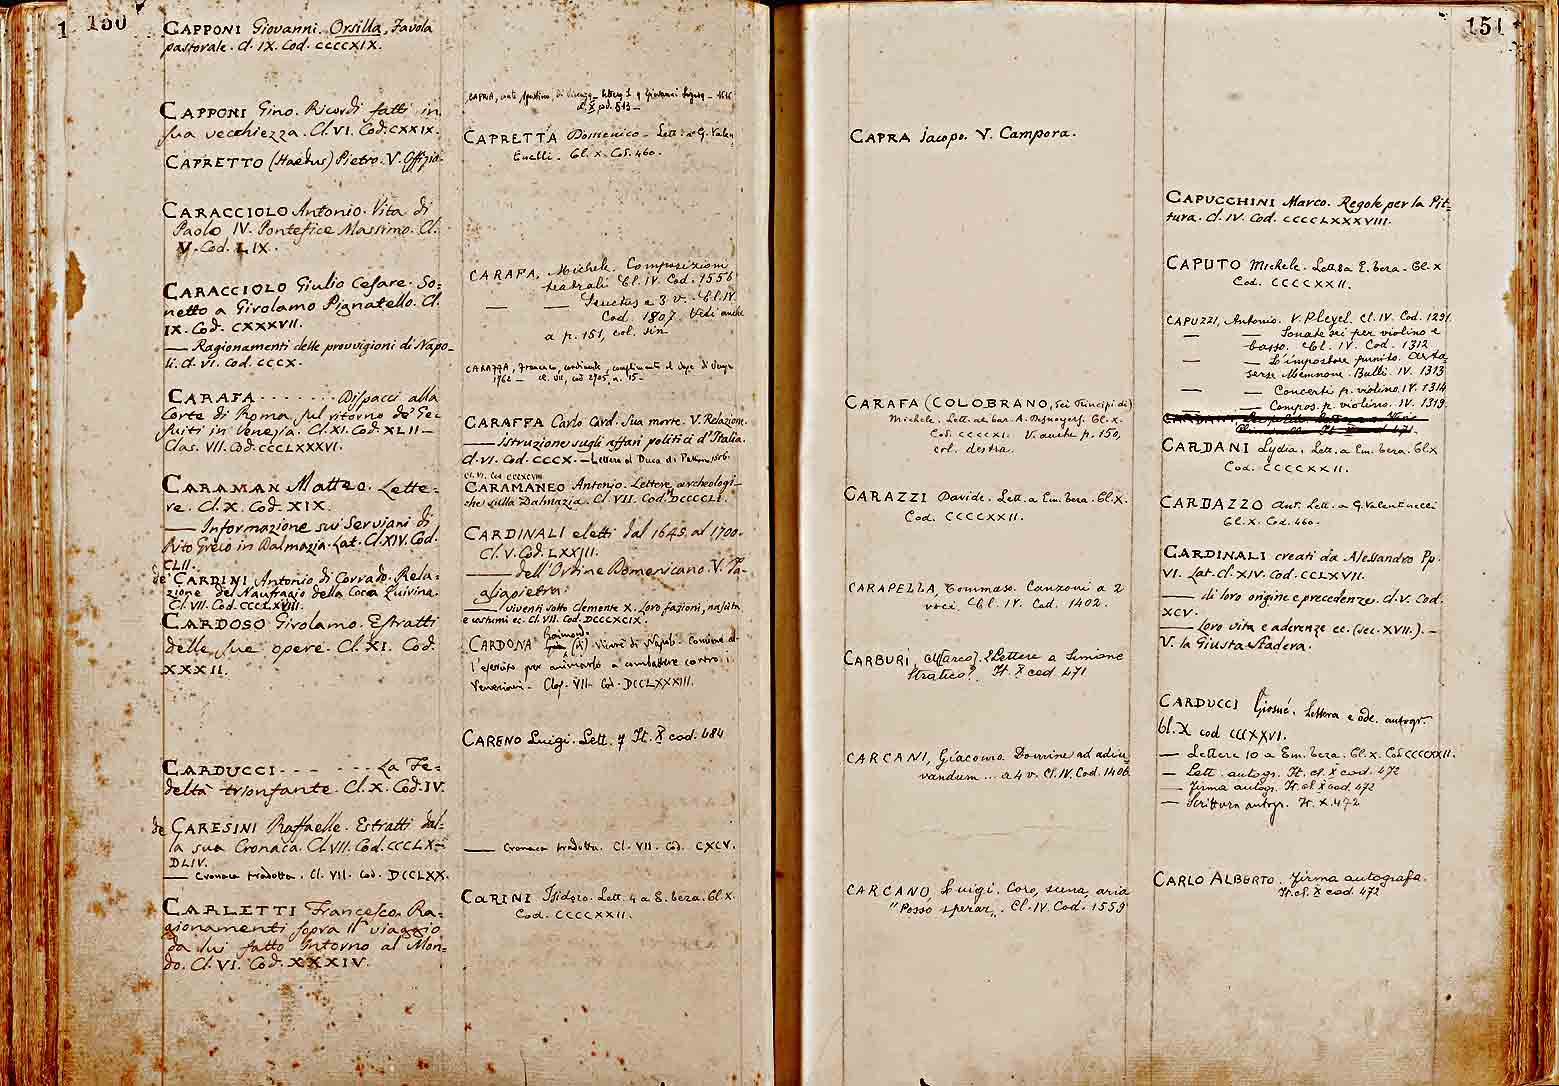 150
CAPPONI Giovanni. Orsilla, Favola
pastorale. Cl. IX. Cod. CCCCXIX.
CAPPONI Gino. Ricordi fatti in
sua vecchiezza. Cl. VI. Cod. CXXIX.
CAPRETTO (Haedus) Pietro. V. Offizio.
CARACCIOLO Antonio. Vita di
Paolo IV. Pontefice Massimo. Cl.
V. Cod. LIX.
CARACCIOLO Giulio Cesare. So=
netto a Girolamo Pignatello. Cl.
IX. Cod. CXXXVII.
— Ragionamenti delle provvigioni di Napo=
li. Cl. VI. Cod. CCCX.
CARAFA . . . . . . . Dispacci alla
Corte di Roma, sul ritorno de' Ge=
suiti in Venezia. Cl. XI. Cod. XLII —
Clas. VII. Cod. CCCLXXXVI.
CARAMAN Matteo. Lette=
re. Cl. X. Cod. XIX.
— Informazione sui Serviani di
Rito Greco in Dalmazia. Lat. Cl. XIV. Cod.
CLII.
de' CARDINI Antonio di Corrado. Rela=
zione del Naufragio della Cocca Quirina.
Cl. VII. Cod. CCCLXVIII.
CARDOSO Girolamo. Estratti
delle sue opere. Cl. XI. Cod.
XXXII.
CARDUCCI . . . . . . La Fe=
deltà trionfante. Cl. X. Cod. IV.
de CARESINI Raffaelle. Estratti dal=
la sua Cronaca. Cl. VII. Cod. CCCLX—
DLIV.
— Cronaca tradotta. Cl. VII. Cod. DCCLXX.
CARLETTI Francesco. Ra=
gionamenti sopra il viaggio
da lui fatto intorno al Mon=
do. Cl. VI. Cod. XXXIV.
CAPRA, conte
CAPRETTA Domenico — Lett. a G. Valen
tinelli. Cl. X. Cod. 460.
CARAFA, Michele. Composizioni
teatrali Cl. IV. Cod. 1556
— — a 3 v. Cl. IV.
Cod. 1807. Vedi anche
a p. 151, col. sin
CARAFFA, Francesco, cardinale,
1762 — Cl. VII, cod 2705,
CARAFFA Carlo Card. Sua morte. V. Relazione.
— Istruzione sugli affari politici d'Italia.
Cl. VI. Cod. CCCX. — Lettere al Duca di
CARAMANEO Antonio. Lettere archeologi=
che sulla Dalmazia. Cl. VII. Cod. DCCCCLI.
CARDINALI eletti dal 1645. al 1700.
Cl. V. Cod. LXXIII.
— dell'Ordine Domenicano. V. Ta=
gliapietra.
— viventi sotto Clemente X. Loro fazioni, nascita
e costumi ec. Cl. VII. Cod. DCCXCIX.
CARDONA Raimondo (di) Vicerè di Napoli.
l'esercito per animarlo a combattere contro i
Veneziani — Clas. VII. Cod. DCCLXXXIII.
CARENO Luigi. Lett. 7 It. X cod. 484
— Cronaca tradotta. Cl. VII. Cod. CXCV.
CARINI Isidoro. Lett. 4 a E. Teza. Cl. X.
Cod. CCCCXXII.
151
CAPRA Jacopo. V. Campora.
CARAFA (COLOBRANO, dei Principi di)
Michele. Lett. al bar. A. Cl. X.
Cod. CCCCXI. V. anche p. 150,
col. destra.
CARAZZI Davide. Lett. a Em. Teza. Cl. X.
Cod. CCCCXXII.
CARAPELLA, Tommaso. Canzoni a 2
voci. Cl. IV. Cod. 1402.
CARBURI, M[arco]. 2 Lettere a Simone
Stratico? It. X cod. 471
CARCANI, Giacomo. Domine ad adiu
vandum ... a 4 v. Cl. IV. Cod. 1406
CARCANO, Luigi. Coro, scena, aria
"Posso sperar„. Cl. IV. Cod. 1559
CAPUCCHINI Marco. Regole per la Pit=
tura. Cl. IV. Cod. CCCCLXXXVIII.
CAPUTO Michele. Lett. 2 a E. Teza. Cl. X
Cod. CCCCXXII.
CAPUZZI, Antonio. V. Pleyel. Cl. IV. Cod. 1291.
— Sonate sei per violino e
basso. Cl. IV. Cod. 1312
— — L'impostore punito. Arta=
serse. Memnone. Balli. IV. 1313
— Concerti p. violino. IV. 1314
— Compos. p. violino. IV. 1319.
CARDANI Lydia. Lett. a Em. Teza. Cl. X
Cod. CCCCXXII.
CARDAZZO Ant. Lett. a G. Valentinelli
Cl. X. Cod. 460.
CARDINALI creati da Alessandro Pp.
VI. Lat. Cl. XIV. Cod. CCLXVII.
— di loro origine e precedenze. Cl. V. Cod.
XCV.
— Loro vita e aderenze ec. (sec. XVII.). —
V. la Giusta Stadera.
CARDUCCI Giosuè. Lettera e ode. autogr.
Cl. X cod CCCXXVI.
— Lettere 10 a Em. Teza. Cl. X. Cod CCCCXXII.
— Lett. autogr. It. cl. X cod. 472
— Firma autogr. It. cl. X cod. 472
— Scrittura autogr. It. X. 472
CARLO ALBERTO. Firma autografa.
It. cl. X cod. 472